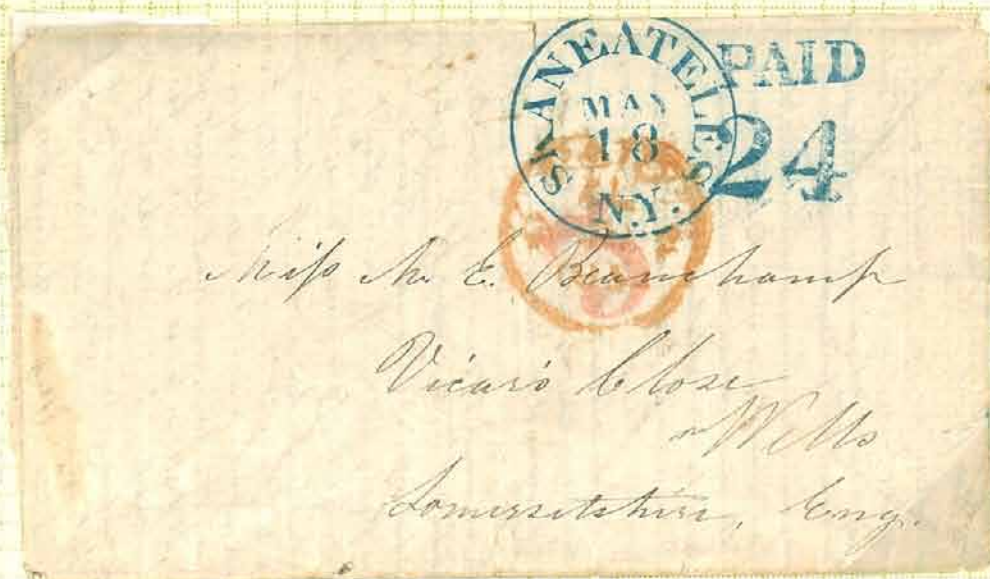 SKANEATELES
MAY
18
N.Y.
PAID
24
Miss M. E. Beauchamp
Vicars Close
Wells
Somersetshire, Eng.